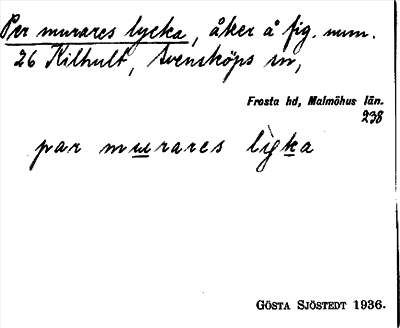 Per murares lycka, åker å fig. num.
26 Kilhult, Svensköps sn,
Frosta hd, Malmöhus län.
238
par murares ligka
GÖSTA SJÖSTEDT 1936.